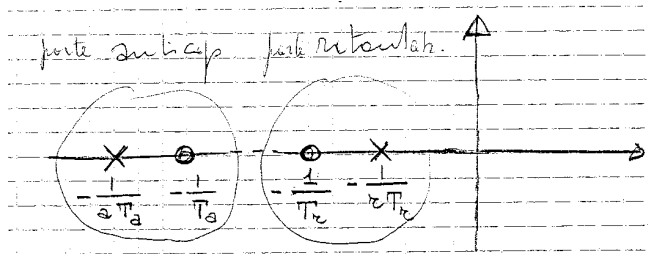 parte anticip parte ritardatr.
-1/aTa -1/Ta -1/Tr -1/rTr